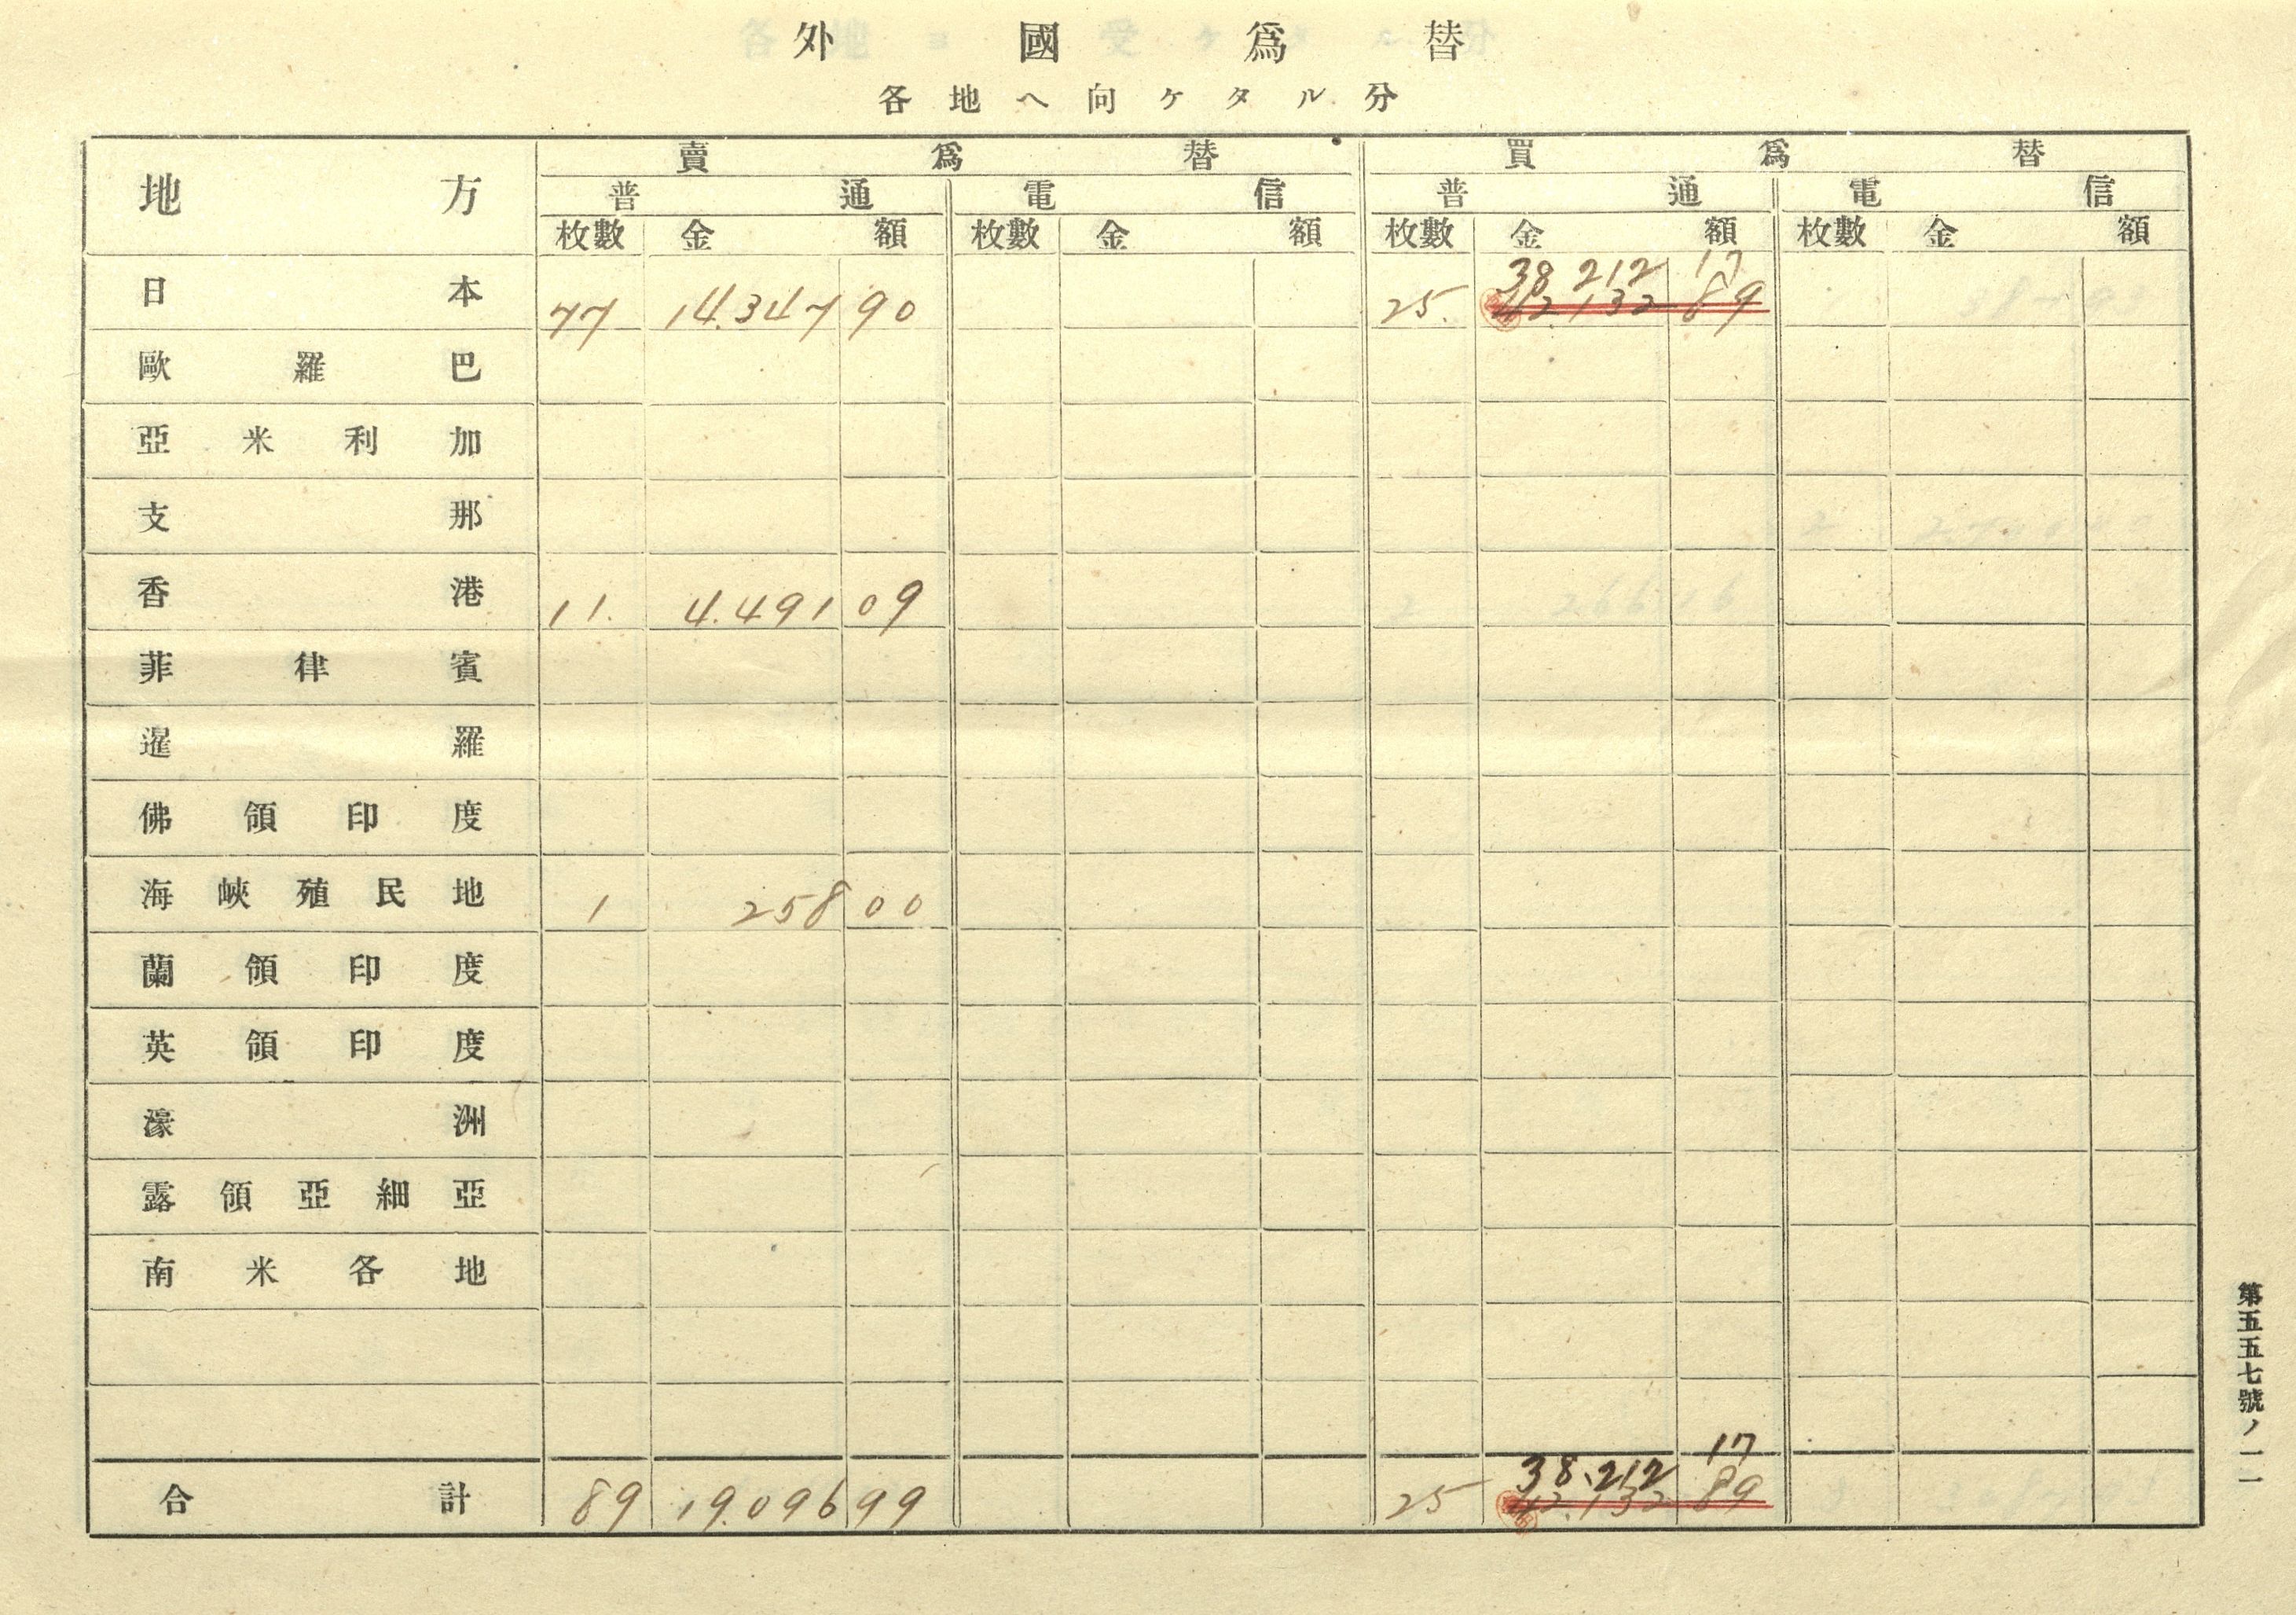 外國爲替
各地ヘ向ケタル分
地方 賣爲替 買爲替
普通 電信 普通 電信
枚數 金額 枚數 金額 枚數 金額 枚數 金額
日本 77 14.347 90 25. 38 212 17
42.132 89
歐羅巴
亞米利加
支那
香港 11. 4.491 09
菲律賓
暹羅
佛領印度
海峽殖民地 1 258 00
蘭領印度
英領印度
濠洲
露領亞細亞
南米各地
合計 89 19.096 99 25 38.212 17
42.132 89
第五五七號ノ一一